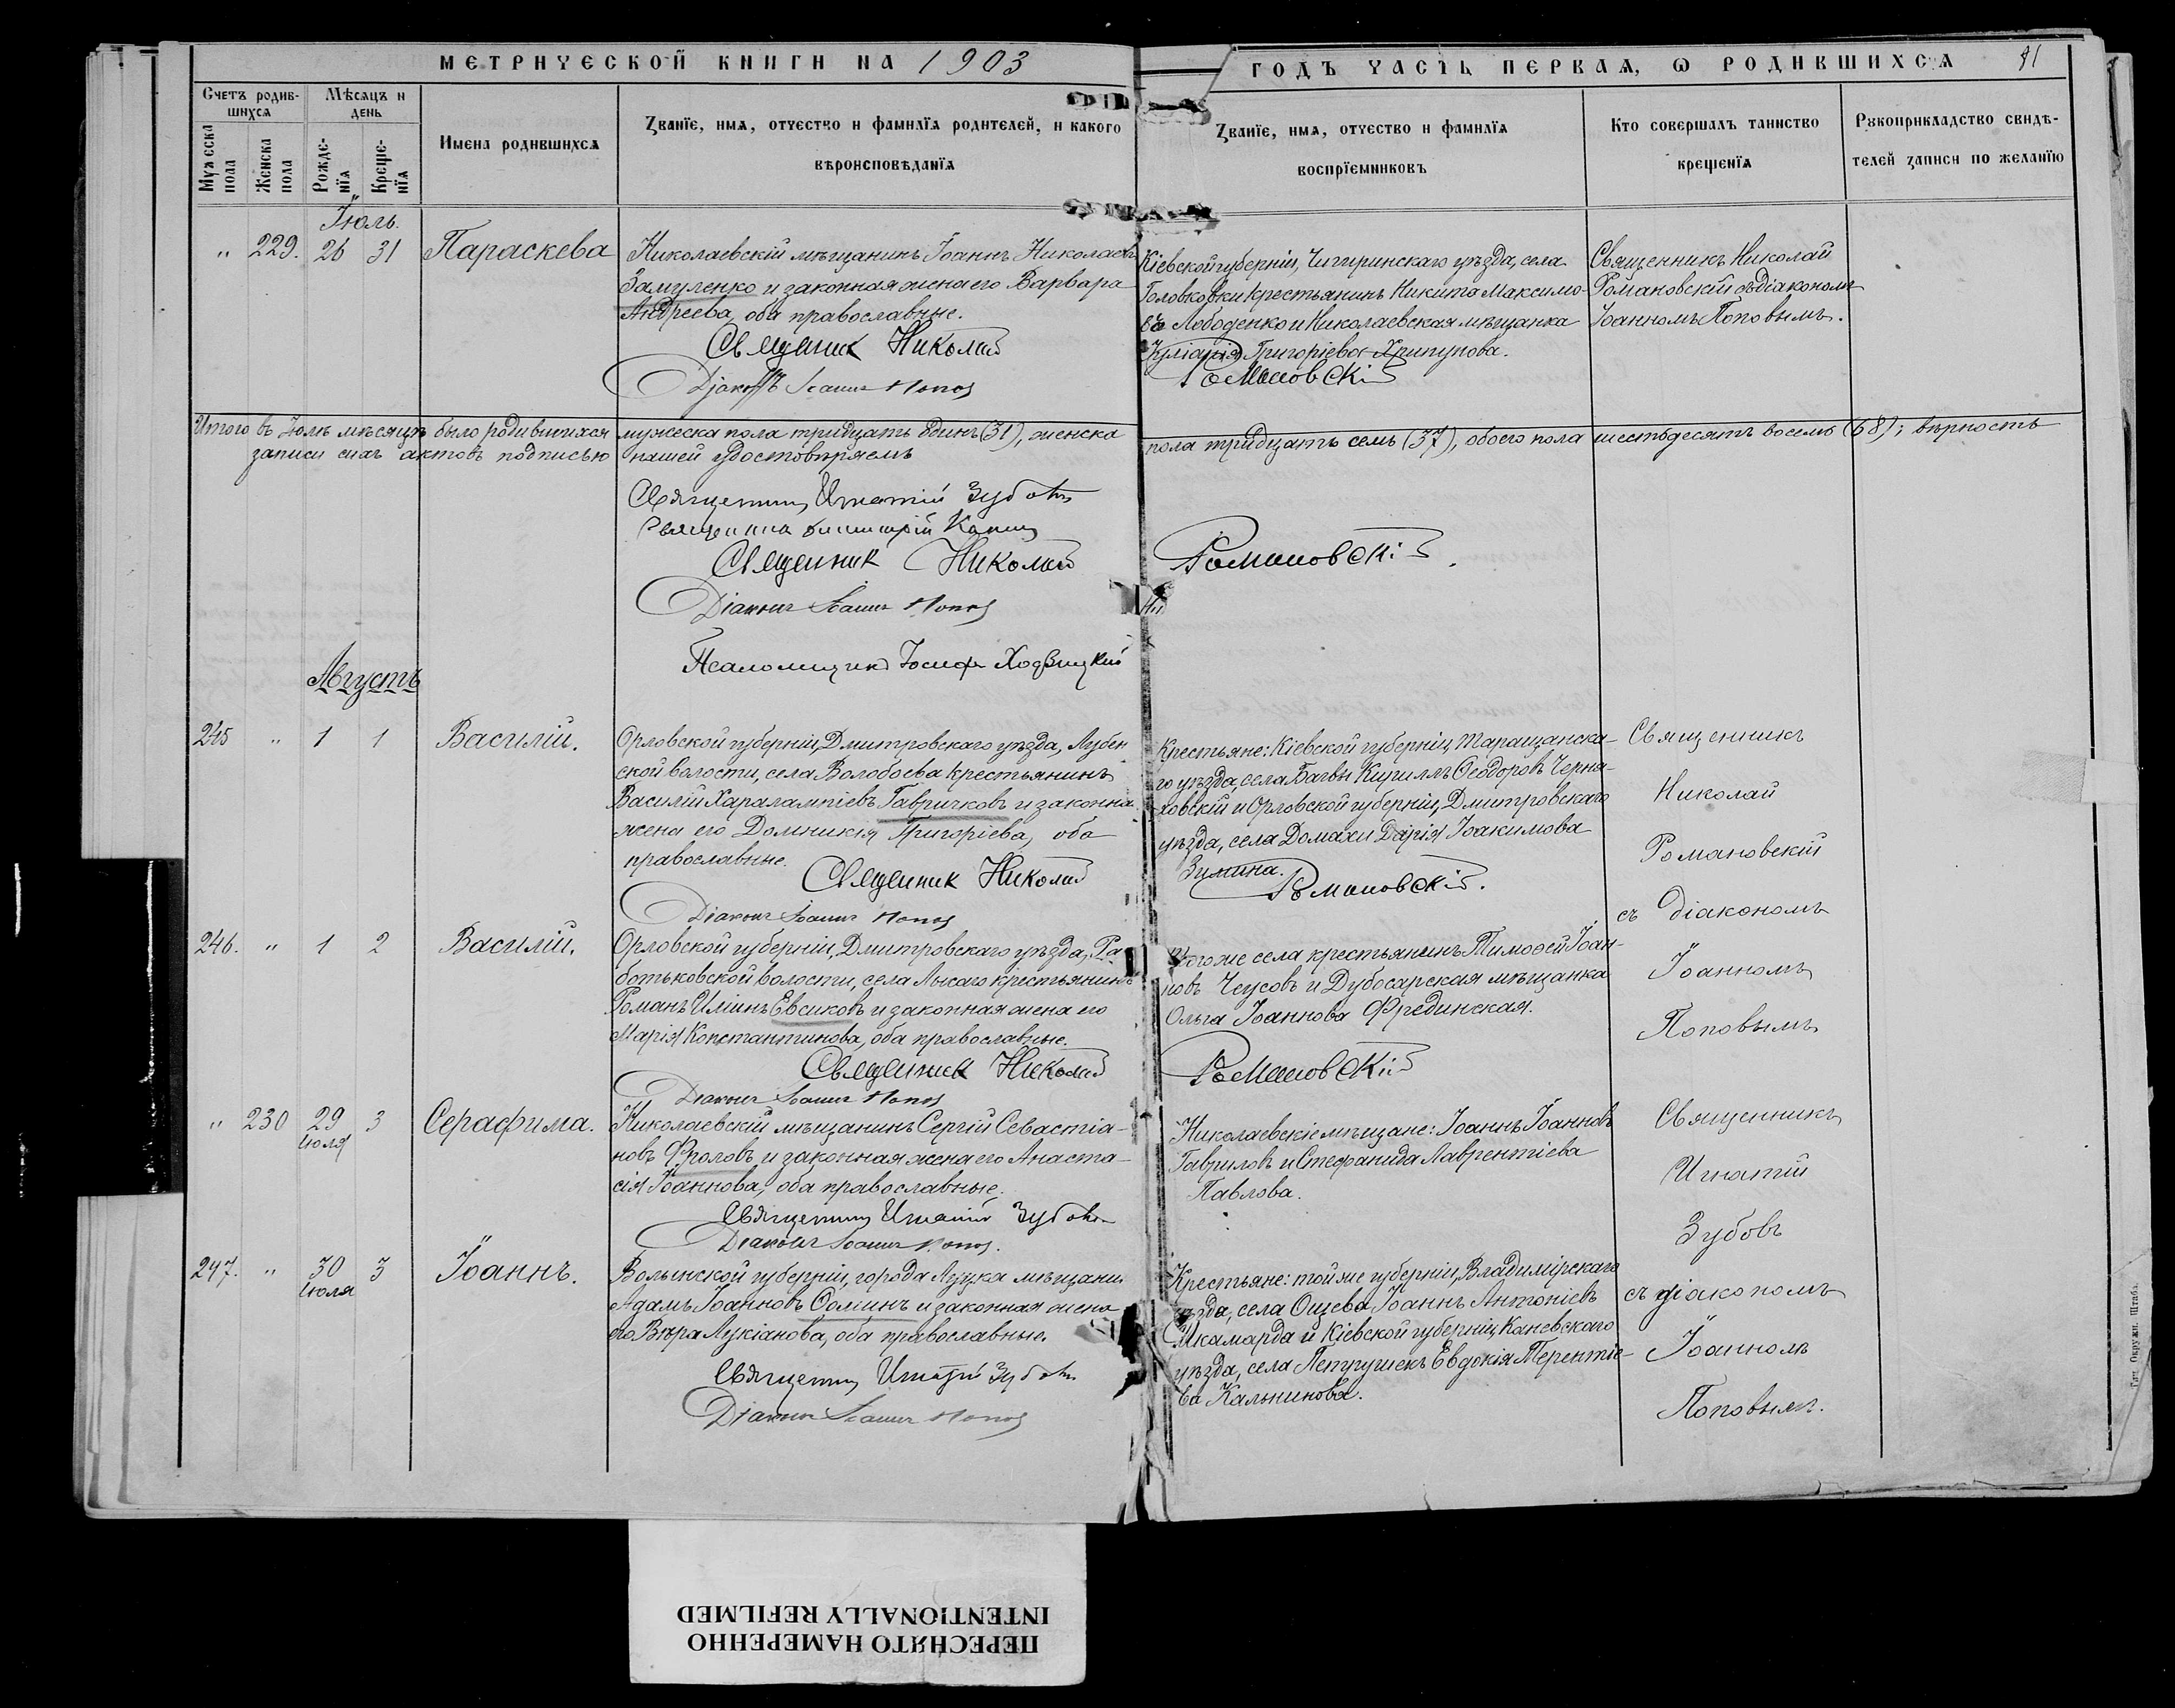 МЕТРИЧЕСКОЙ КНИГИ НА 1903
ГОДЪ ЧАСТЬ ПЕРВАЯ, Ѡ РОДИВШИХСЯ
Счетъ родив-
шихся
Мѣсяцъ и
день
Мужеска
пола
Женска
пола
Рожде-
нїя
Креще-
нїя
Имена родившихся
Званїе, имя, отчество и фамилїя родителей, и какого
вѣроисповѣданїя
Званїе, имя, отчество и фамилїя
воспрїемниковъ
Кто совершалъ таинство
крещенїя
Рукоприкладство свидѣ-
телей записи по желанїю
Іюль.
" 229. 26 31 Параскева
Николаевскій мѣщанинъ Іоаннъ Николаевъ
Замуленко и законная жена его Варвара
Андреева, оба православные.
Священник Николай
Діаконъ Іоаннъ Попов
Кіевской губерніи, Чигиринскаго уѣзда, села
Головковки крестьянинъ Никита Максимо-
въ Лободенко и Николаевская мѣщанка
Іуліанія Григоріева Хрипунова.
Романовскій
Священникъ Николай
Романовскій съ діакономъ
Іоанномъ Поповымъ.
Итого въ Іюлѣ мѣсяцѣ было родившихся мужеска пола тридцать одинъ (31), женска пола тридцать семь (37), обоего пола шестьдесятъ восемь (68); вѣрность
записи сихъ актовъ подписью нашей удостовѣряемъ
Священникъ Игнатій Зубовъ
Священникъ
Священник Николай Романовскій.
Діаконъ Іоаннъ Попов
Псаломщикъ Іосифъ
Августъ
245 " 1 1 Василій.
Орловской губерніи, Дмитровскаго уѣзда, Лубен
ской волости, села Волобоева крестьянинъ
Василій Харалампіевъ Гавричковъ и законна
жена его Домникія Григоріева, оба
православные.
Священик Николай
Діаконъ Іоаннъ Попов
Крестьяне: Кіевской губерніи, Таращанска-
го уѣзда, села Багвы Кириллъ Ѳеодоровъ Черня-
ховскій и Орловской губерніи, Дмитровскаго
уѣзда, села Домахи Дарія Іоакимова
Зимина.
Романовскій.
Священникъ
Николай
Романовскій
съ діакономъ
Іоанномъ
Поповымъ
246. " 1 2 Василій.
Орловской губерніи, Дмитровскаго уѣзда, Ра
ботьковской волости, села Лысаго крестьянинъ
Романъ Иліинъ Евсиковъ и законная жена его
Марія Константинова, оба православные.
Священник Николай
Діаконъ Іоаннъ Попов
того же села крестьянинъ Тимоѳей Іоан-
новъ Чеусовъ и Дубосарская мѣщанка
Ольга Іоаннова Фрединская.
Романовскій
" 230 29 3 Серафима.
Іюля
Николаевскій мѣщанинъ Сергій Севастіа-
новъ Фроловъ и законная жена его Анаста-
сія Іоаннова, оба православные.
Священникъ Игнатій Зубовъ
Діаконъ Іоаннъ Попов.
Николаевскіе мѣщане: Іоаннъ Іоанновъ
Гавриловъ и Стефанида Лаврентіева
Павлова.
Священникъ
Игнатій
Зубовъ
съ діакономъ
Іоанномъ
Поповымъ.
247. " 30 3 Іоаннъ.
Іюля
Волынской губерніи, города Луцка мѣщанин
Адамъ Іоанновъ и законная жена
его Вѣра Лукіанова, оба православные.
Священникъ Игнатій Зубовъ
Діаконъ Іоаннъ Попов
Крестьяне: той же губерніи, Владимірскаго
уѣзда, села Ощева Іоаннъ Антоніевъ
Шкамарда и Кіевской губерніи, Каневскаго
уѣзда, села Петрушекъ Евдокія Терентіе-
ва Кальчинова.
ПЕРЕСНЯТО НАМЕРЕННО
INTENTIONALLY REFILMED